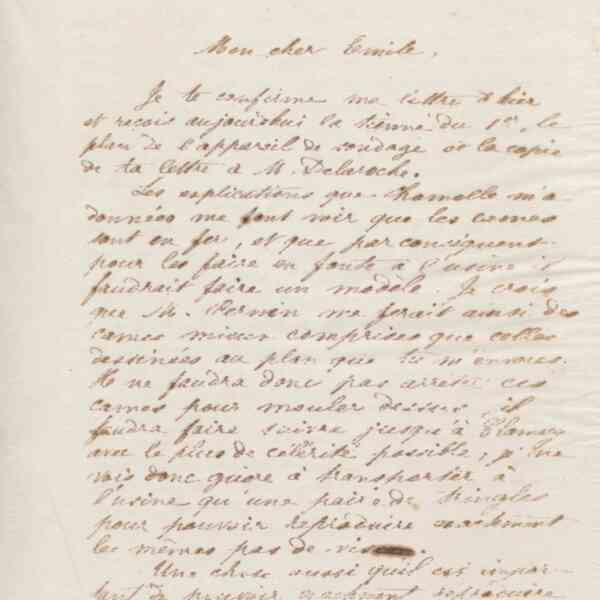 Mon cher Emile,
Je te confirme ma lettre d'hier
et reçois aujourdhui la tienne du 1er, le
plan de l'appareil de sondage et la copie
de ta lettre à M. Delaroche.
Les explications que m'a
données me font voir que les cames
sont en fer, et que par conséquent
pour les faire en fonte à l'usine il
faudrait faire un modèle. Je crois
que M. me ferait ainsi des
cames mieux comprises que celles
dessinées au plan que tu m'envoies.
Il ne faudra donc pas arrêter ces
cames pour mouler dessus, il
faudra faire suivre jusqu'à
avec le plus de célérité possible, je ne
vois donc guère à transporter à
l'usine qu'une paire de tringles
pour pouvoir reproduire exactement
les mêmes pas de vis.
Une chose aussi qu'il est impor-
tant de pouvoir exactement reproduire